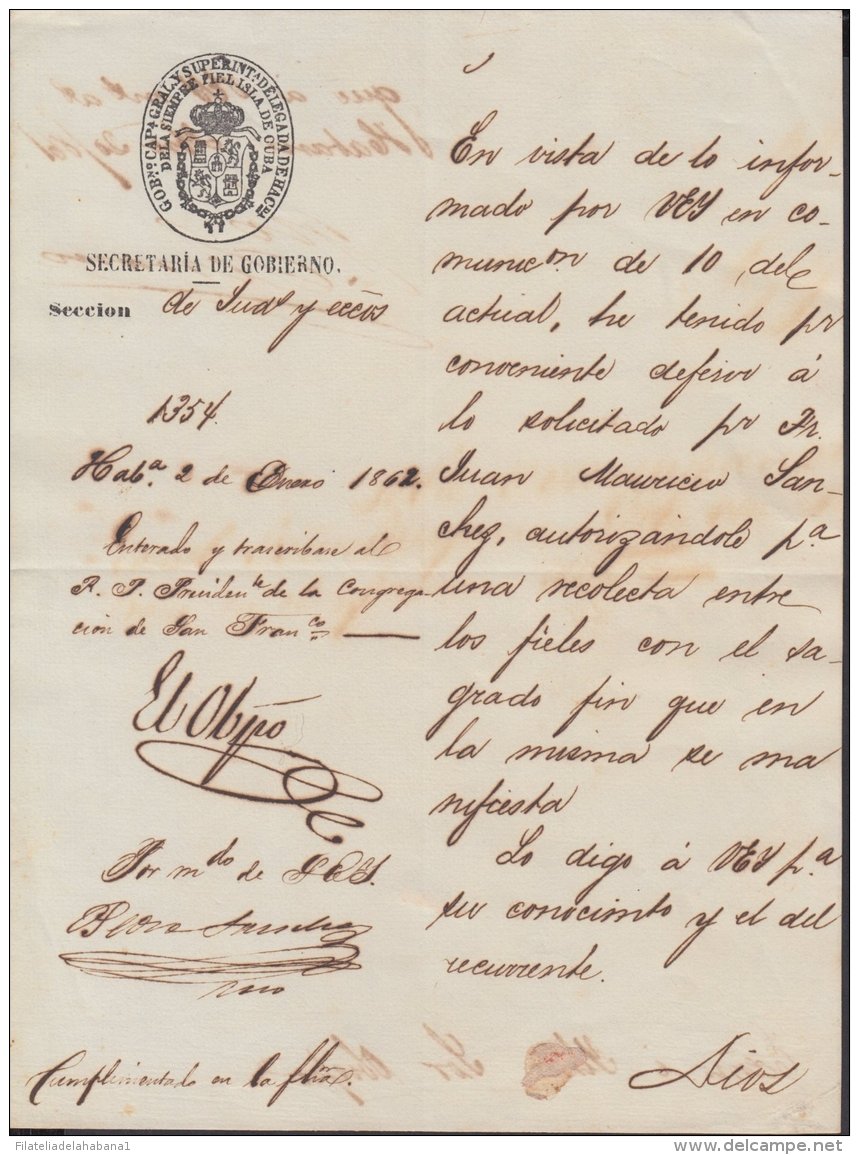 GOBno. CAPa. GRAL. Y SUPERINTa. DELEGADA DE HACda.
DE LA SIEMPRE FIEL ISLA DE CUBA
SECRETARÍA DE GOBIERNO.
Seccion de Judl y eccos
1354.
Haba. 2 de Enero 1862.
Enterado y trascribase al
R. P. Presidente de la Congrega
cion de San Franco.
El Obpo
Por mdo de S.E.Y.
Pedro Sanchez
Srio
Cumplimentado en la fha.
En vista de lo infor-
mado por VEY en co-
municon. de 10 del
actual, he tenido pr
conveniente deferir á
lo solicitado pr Fr.
Juan Mauricio San-
chez, autorizándole pa
una recolecta entre
los fieles con el sa-
grado fin que en
la misma se ma
nifiesta
Lo digo á VEY pa
su conocimto y el del
recurrente.
Dios
Filateliadelahabana1
delcampe.net